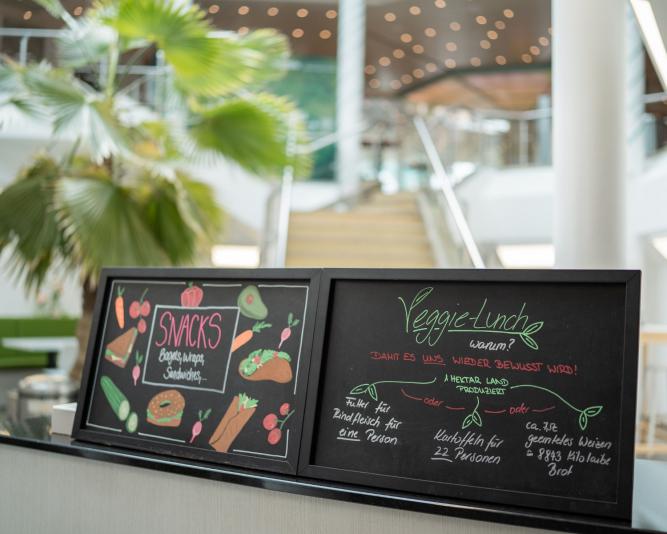 SNACKS
Bagels, Wraps,
Sandwiches,...
Veggie-Lunch
warum?
DAMIT ES UNS WIEDER BEWUSST WIRD!
1 HEKTAR LAND
PRODUZIERT
oder
oder
Futter für
Rindfleisch für
eine Person
Kartoffeln für
22 Personen
ca. 7,5t
geerntetes Weizen
8843 Kilo Laibe
Brot